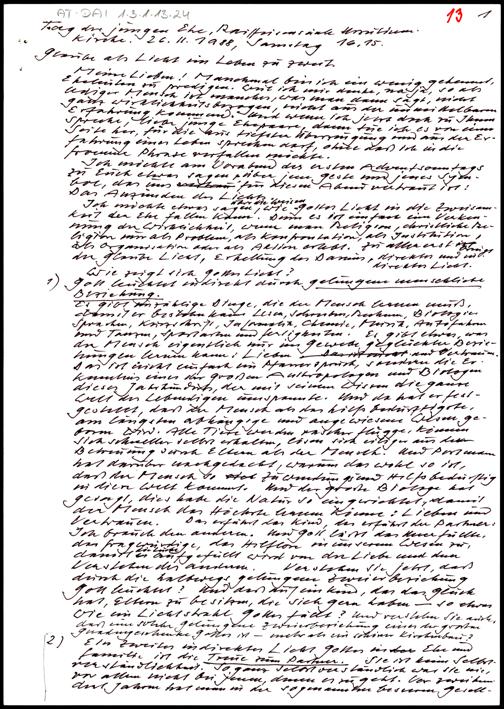 AT-DAI 1.3.1-13.24
13 1
Tag der jungen Ehe, Raiffeisensäle Ursulinen
Kirche. 26.11.1988, Samstag 16.15.
Glaube als Licht im Leben zu zweit
Meine Lieben! Manchmal bin ich ein wenig gehemmt,
Eheleuten zu predigen. Weil ich mir denke, na ja, so als
lediger Mensch ist manches, was man dann sagt, nicht
ganz wirklichkeitsbezogen, nicht aus der unmittelbaren
Erfahrung kommend. Und wenn ich jetzt doch zu Ihnen
spreche, liebe junge Ehepaare, dann tue ich es von dem
her, für die aus
fahrung eines Leben sprechen darf, ohne daß ich in die
fromme Phrase verfallen möchte.
Ich möchte am Vorabend des ersten Adventsonntags
zu Euch etwas sagen über jene Geste und jenes Sym-
bol, das uns für diesen Abend vertraut ist:
Das Anzünden des Lichtes
Ich möchte etwas sagen, wie Gottes Licht in die Zweisam-
keit der Ehe fallen kann. Denn es ist einfach ein Verken-
nung der Wirklichkeit, wenn man Religion christliche Re-
ligion nur als Problem, als Konfrontation, als Institution,
als Organisation oder als Aktion erlebt. Zu allererst ist
der Glaube Licht, Erhellung des Daseins, direktes und indi-
direktes Licht.
Wie zeigt sich Gottes Licht?
1) Gott leuchtet indirekt durch gelungene menschliche
Beziehung.
Es gibt unzählige Dinge, die der Mensch lernen muß,
damit er bestehen kann Lesen, Schreiben, Rechnen, Biologie
Sprachen, Kurzschrift, Informatik, Chemie, Musik, Autofahren
und Tanzen, Sportarten und Fertigkeiten. Es gibt etwas, was
der Mensch eigentlich nur im Gewebe geglückter Bezie-
hungen lernen kann: Lieben und Vertrauen.
Das ist nicht einfach ein Hausspruch, sondern die Er-
kenntnis eines der großen Anthropologen und Biologen
dieses Jahrhunderts, der mit seinem Wissen die ganze
Welt des Lebendigen umspannte. Und da hat er fest-
gestellt, daß der Mensch als das hilfsbedürftigste,
am längsten abhängige und angewiesene Wesen ge-
boren wird. Alle Tiere werden rascher flügge, können
sich schneller selbst erhalten, lösen sich eiliger aus dem
Betreuung durch Eltern als der Mensch. Und Portmann
hat darüber nachgedacht, warum das wohl so ist,
daß der Mensch so und hilfsbedürftig
in diese Welt kommt. Und der große Biologe hat
gesagt, dies habe die Natur so eingerichtet, damit
der Mensch das Höchste lernen könne: Lieben und
Vertrauen. Das erfährt das Kind, das erfährt der Partner:
Ich brauch den anderen. Und Gott läßt das Unerfüllte,
das Fragwürdige, das Hilflose an unserem Wesen zu,
damit es aufgefüllt wird von der Liebe und dem
Verstehen des anderen. Verstehen Sie jetzt, daß
durch die halbwegs gelungene Zweierbeziehung
Gott leuchtet? Und daß auf ein Kind, das das Glück
hat, Eltern zu besitzen, die sich gern haben – so etwas
wie ein Lichtstrahl Gottes fällt? Und verstehen Sie auch,
daß eine solche gelungene Zweierbeziehung eines der großen
Gnadengeschenke Gottes ist – mehr als ein
2) Ein zweites indirektes Licht Gottes in der Ehe und
Familie ist die Treue zum Partner. Sie ist keine Selbst-
verständlichkeit. So ganz selbstverständlich war sie nie,
vor allem nicht bei jenen, denen es zu gut geht. Vor
dert Jahren hat man in der sogenannten besseren Gesell-